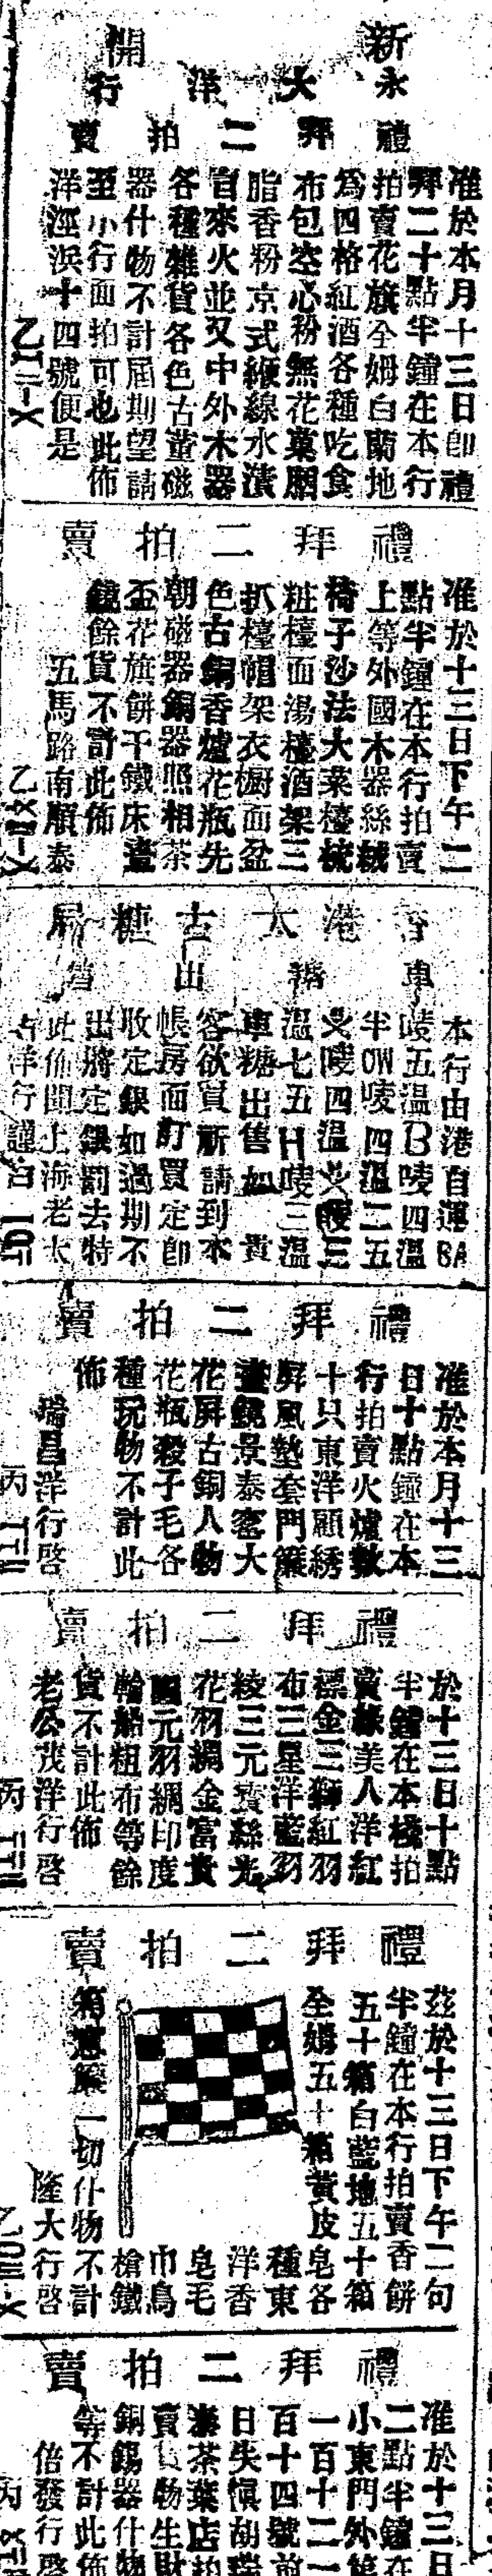 新開
永大洋行
禮拜二拍賣
准於本月十三日即禮
拜二十點半鐘在本行
拍賣花旗全姆白蘭地
為四格紅酒各種吃食
布包空心粉無花菓胭
脂香粉京式緶線水漬
自來火並又中外木器
各種雜貨各色古董磁
器什物不計屆期望請
至小行面拍可也此佈
洋涇浜十四號便是
禮拜二拍賣
准於十三日下午二
點半鐘在本行拍賣
上等外國木器絲絨
椅子沙法大菜檯梳
粧檯面湯檯酒架三
抓檯帽架衣櫥面盆
色古銅香爐花瓶先
朝磁器銅器照相茶
盃花旗餅干鐵床畫
鏡餘貨不計此佈
五馬路南順泰
香港太古糖局
車糖出售
本行由港自運BA
唛五溫B唛四溫
半CW唛四溫二五
溫七五H唛三溫
車糖出售如 貴
客欲買祈請到本
帳房面訂買定即
收定銀如過期不
出將定銀罰去特
此佈聞上海老太
古洋行謹白
禮拜二拍賣
准於本月十三
日十點鐘在本
行拍賣火爐數
十只東洋顧綉
屏風墊套門簾
畫鏡景泰窰大
花屏古銅人物
花瓶骰子毛各
種玩物不計此
佈
瑞昌洋行啓
禮拜二拍賣
於十三日十點
半鐘在本棧拍
賣綠美人洋紅
標金三獅紅羽
布三星洋藍羽
綾三元寶絲光
花羽綢金富貴
元羽綢印度
輪船粗布等餘
貨不計此佈
老公茂洋行啓
禮拜二拍賣
茲於十三日下午二句
半鐘在本行拍賣香餅
五十箱白藍地五十箱
全姆五十箱黃皮皂各
種東
洋香
皂毛
巾鳥
槍鐵
箱窓簾一切什物不計
隆大行啓
禮拜二拍賣
准於十三日
二點半鐘在
小東門外第
一百十二一
百十四號前
日失慎胡瑞
泰茶葉店拍
賣貨物生財
銅錫器什物
等不計此佈
倍發行啓